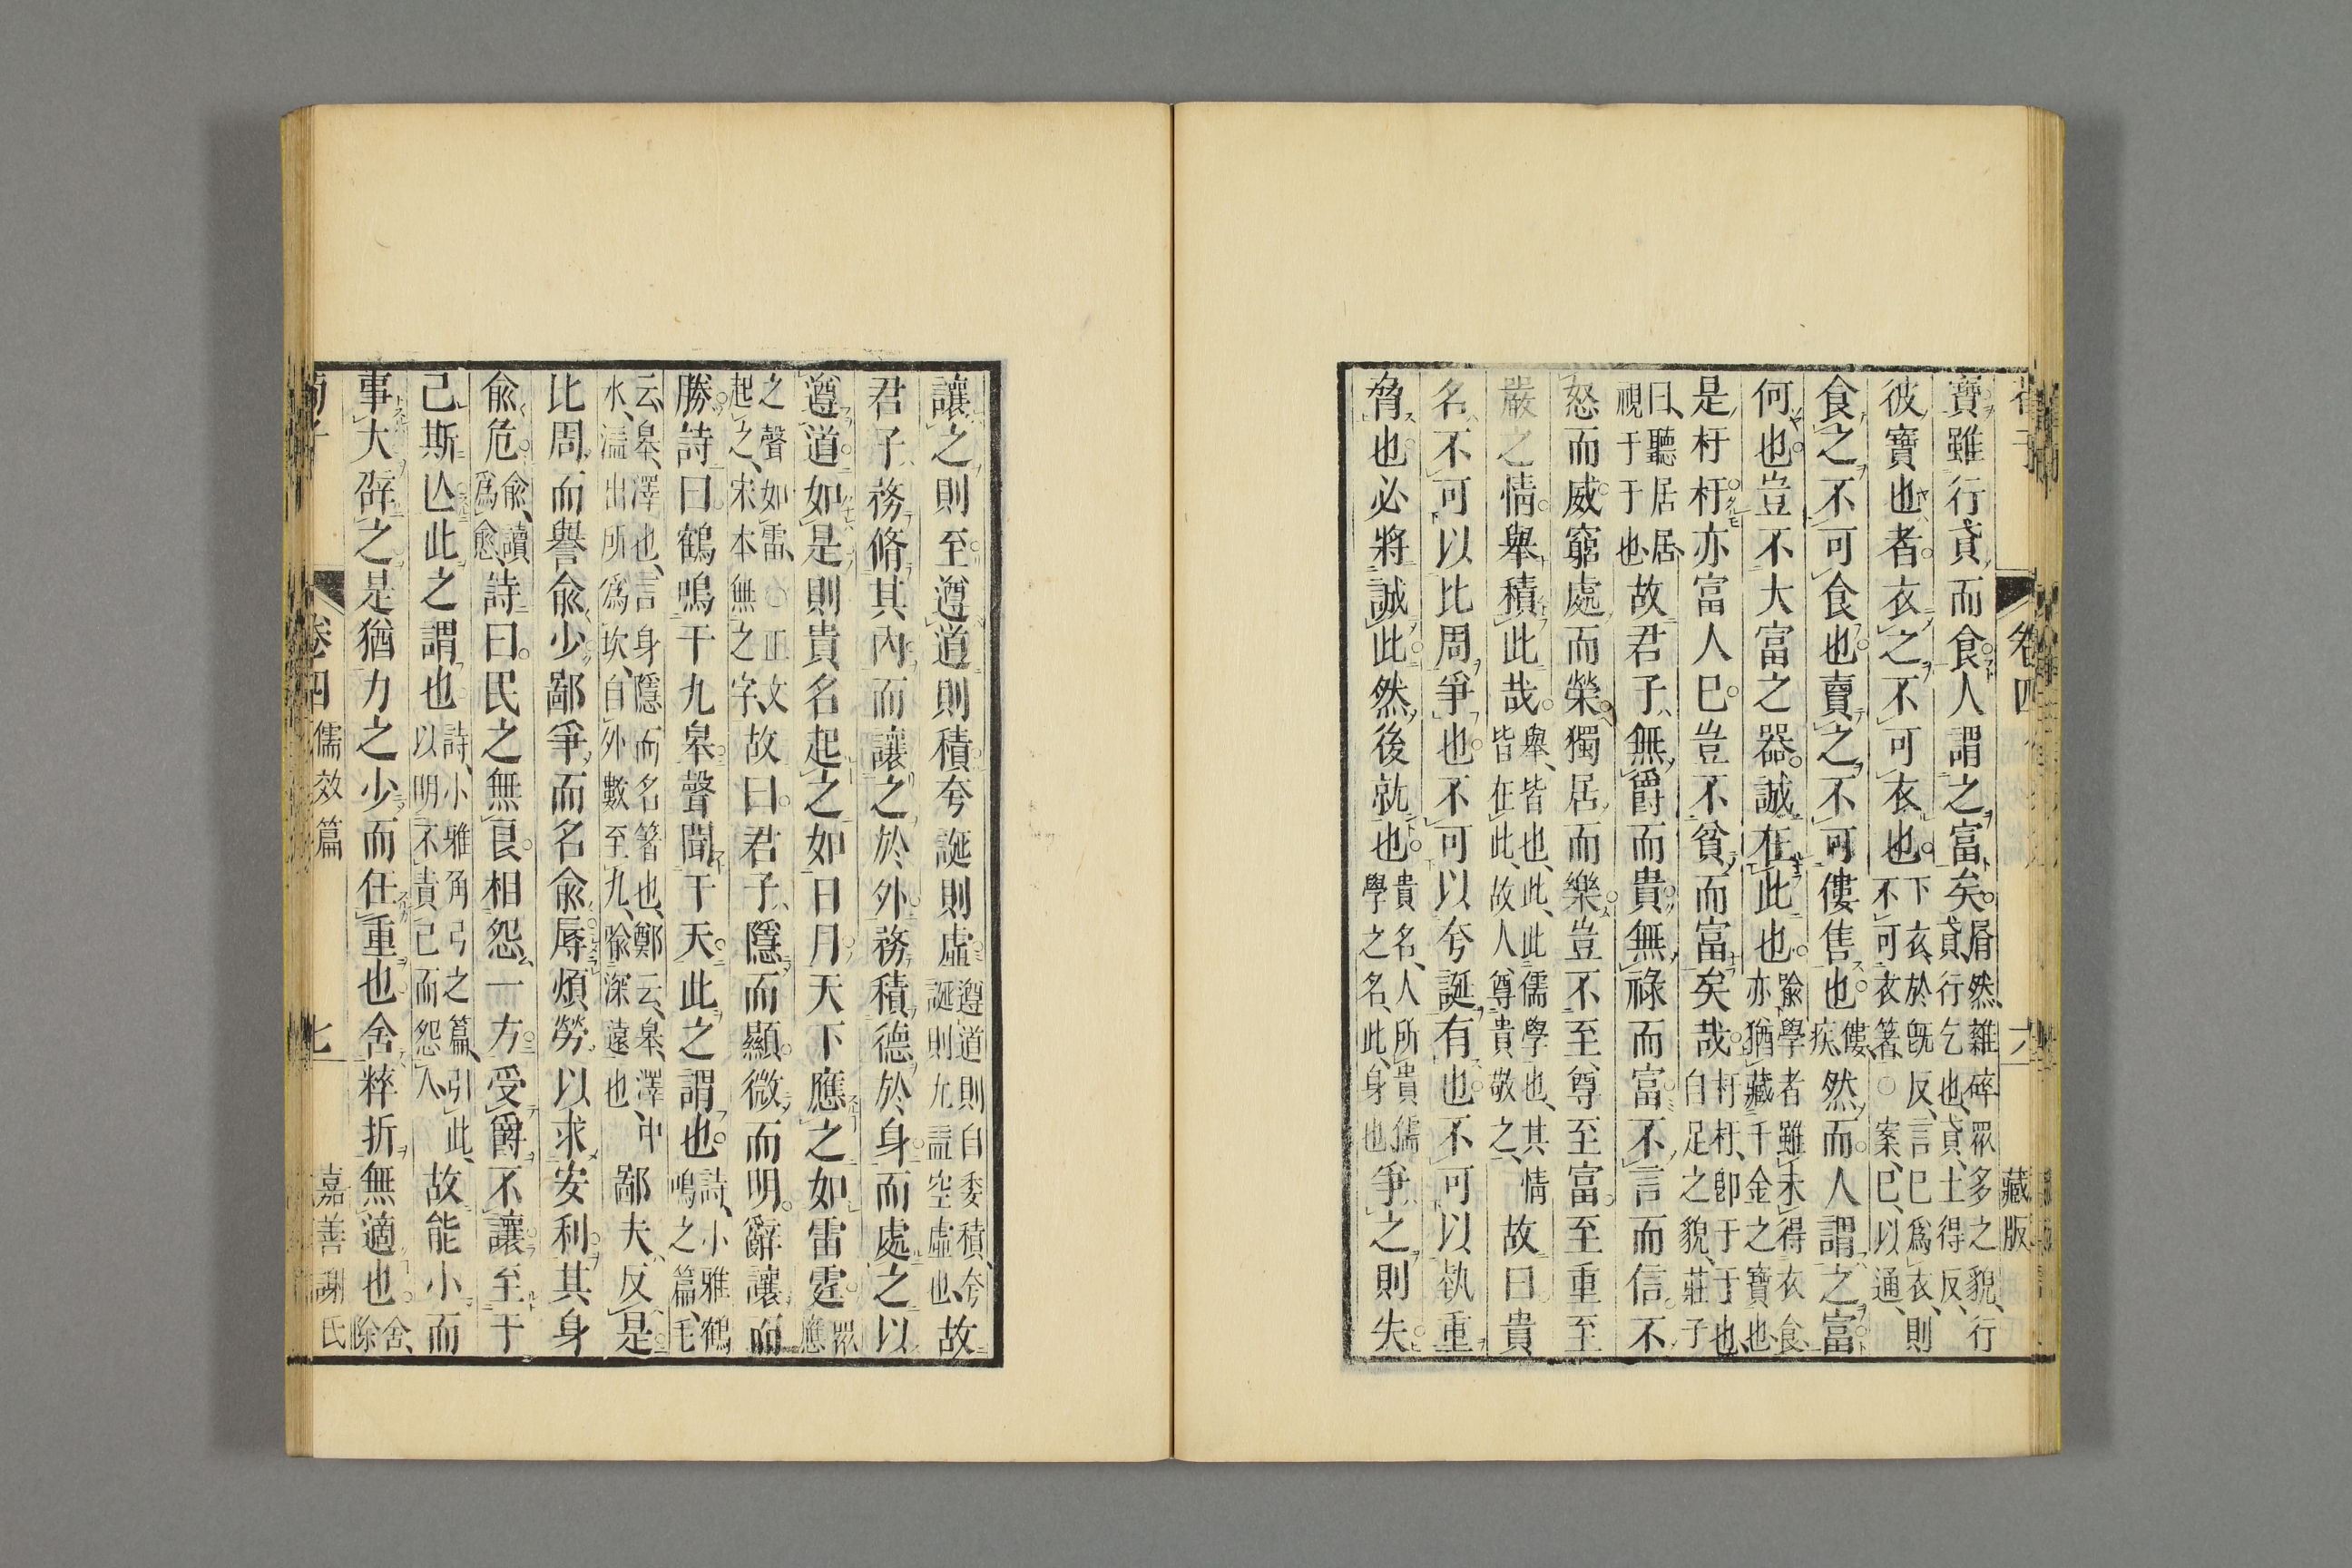 荀子 卷四 六 藏版
寶雖行貣而食人謂之富矣屑然雜碎眾多之貌行貣行乞也貣土得反
彼寶也者衣之不可衣也下衣於旣反言已爲衣則不可衣著○案已以通
食之不可食也賣之不可僂售也僂疾然而人謂之富
何也豈不大富之器誠在此也隃學者雖未得衣食亦猶藏千金之寶也
是杅杅亦富人已豈不貧而富矣哉杅杅卽于于也自足之貌莊子
曰聽居居視于于也故君子無爵而貴無祿而富不言而信不
怒而威窮處而榮獨居而樂豈不至尊至富至重至
嚴之情舉積此哉舉皆也此此儒學也其情皆在此故人尊貴敬之故曰貴
名不可以比周爭也不可以夸誕有也不可以埶重
脅也必將誠此然後就也貴名人所貴儒學之名此身也爭之則失
讓之則至遵道則積夸誕則虛遵道則自委積夸誕則尤益空虛也故
君子務脩其內而讓之於外務積德於身而處之以
遵道如是則貴名起之如日月天下應之如雷霆眾應
之聲如雷○正文起之宋本無之字故曰君子隱而顯微而明辭讓而
勝詩曰鶴鳴于九皋聲聞于天此之謂也詩小雅鶴鳴之篇毛
云皋澤也言身隱而名著也鄭云皋澤中水溢出所爲坎自外數至九喻深遠也鄙夫反是
比周而譽俞少鄙爭而名俞辱煩勞以求安利其身
俞危俞讀爲愈詩曰民之無良相怨一方受爵不讓至于
己斯亾此之謂也詩小雅角弓之篇引此以明不責己而怨人故能小而
事大辟之是猶力之少而任重也舍粹折無適也舍除
荀子 卷四 儒效篇 七 嘉善謝氏